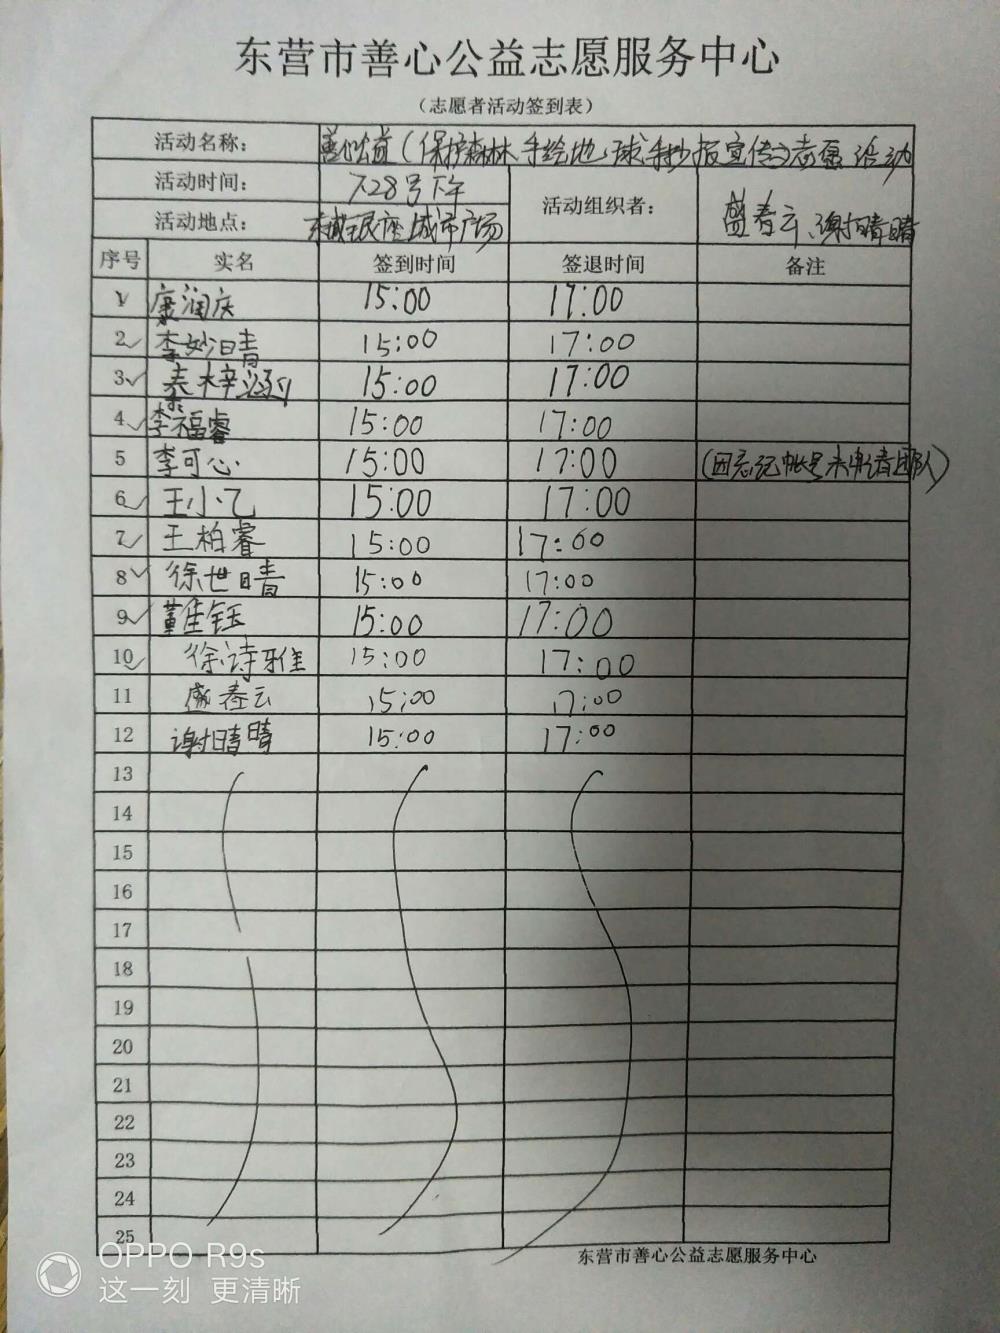 东营市善心公益志愿服务中心
（志愿者活动签到表）
活动名称： 善心公益（保护森林 手绘地球手抄报宣传）志愿活动
活动时间： 7.28号下午
活动地点： 城市广场
活动组织者： 盛春云、谢晴晴
序号 实名 签到时间 签退时间 备注
1 康润庆 15:00 17:00
2 李妙晴 15:00 17:00
3 15:00 17:00
4 李福睿 15:00 17:00
5 李可心 15:00 17:00 (因忘记帐号未申请团队)
6 王小乙 15:00 17:00
7 王柏睿 15:00 17:00
8 徐世晴 15:00 17:00
9 董佳钰 15:00 17:00
10 徐诗雅 15:00 17:00
11 盛春云 15:00 17:00
12 谢晴晴 15:00 17:00
13
14
15
16
17
18
19
20
21
22
23
24
25
东营市善心公益志愿服务中心
OPPO R9s
这一刻 更清晰